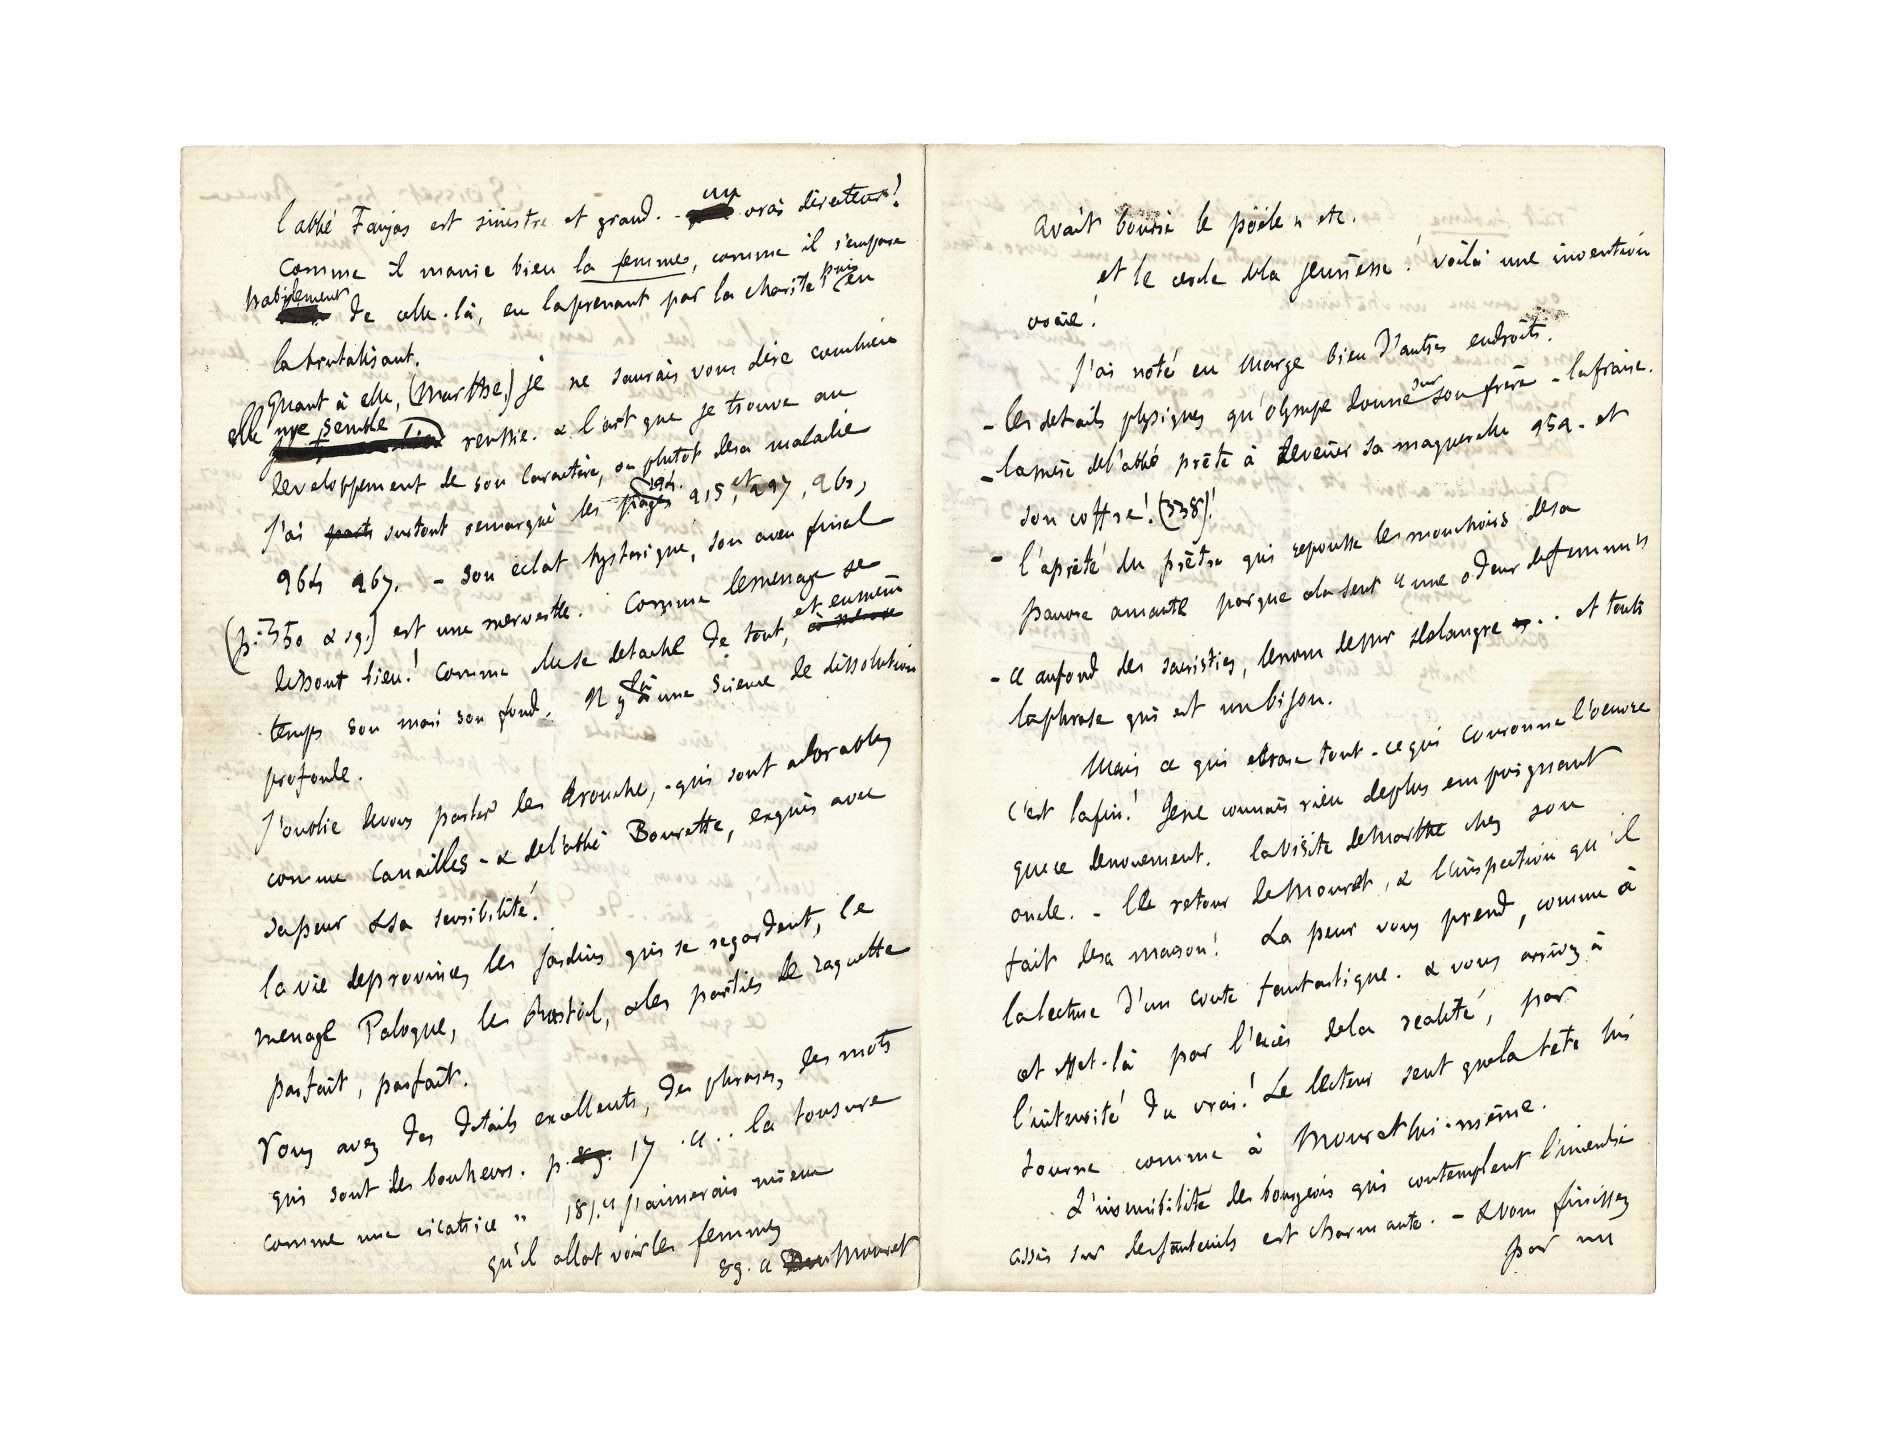 l'abbé Faujas est sinistre et grand. - un vrai directeur!
Comme il manie bien la femme, comme il s'empare
habilement de celle-là, en la prenant par la charité puis en
la brutalisant.
Quant à elle, (Marthe,) je ne saurais vous dire combien
elle me semble réussie. & l'art que je trouve au
developpement de son caractère, ou plutot de sa maladie
J'ai surtout remarqué les pages 194. 215, et 227, 261,
264 267. - son éclat hystérique, son aveu final
(p. 350 & sq.) est une merveille. Comme le menage se
dissout bien! comme elle se detache de tout, et en même
temps son mari son fond. Il y a là une science de dissolution
profonde.
J'oublie de vous parler les Trouche, - qui sont adorables
comme canailles - & de l'abbé Bourrette, exquis avec
sa peur & sa sensibilité!
la vie de province, les jardins qui se regardent, le
menage Paloque, les Rastoil, & les parties de raquette
parfait, parfait.
Vous avez des détails excellents, des phrases, des mots
qui sont des bonheurs. p. 17 « .. la tonsure
comme une cicatrice » 181. « j'aimerais mieux
qu'il allat voir les femmes
89. « Mouret
avait bourré le poële » etc.
et le cercle de la jeunesse! voilà une invention
vraie!
J'ai noté en marge bien d'autres endroits.
- les details physiques qu'Olympe donne sur son frère - la fraise.
- la mère de l'abbé prête à devenir sa maquerelle 252 - et
son coffre! (338)!
- l'apreté du prêtre qui repousse les mouchoirs de sa
pauvre amante parce que cela sent « une odeur de femme »
- « au fond des sacristies, le nom de Mgr Delangre » .. et toute
la phrase qui est un bijou.
Mais ce qui ecrase tout - ce qui couronne l'oeuvre
c'est la fin! Je ne connais rien de plus empoignant
que ce denouement. la visite de Marthe chez son
oncle. - Le retour de Mouret, & l'inspection qu'il
fait de sa maison! La peur vous prend, comme à
la lecture d'un conte fantastique. & vous arrivez à
cet effet-là par l'excès de la réalité, par
l'intensité du vrai! Le lecteur sent que la tête lui
tourne comme à Mouret lui-même.
L'insensibilité des bourgeois qui contemplent l'incendie
assis sur des fauteuils est charmante. - & vous finissez
par un